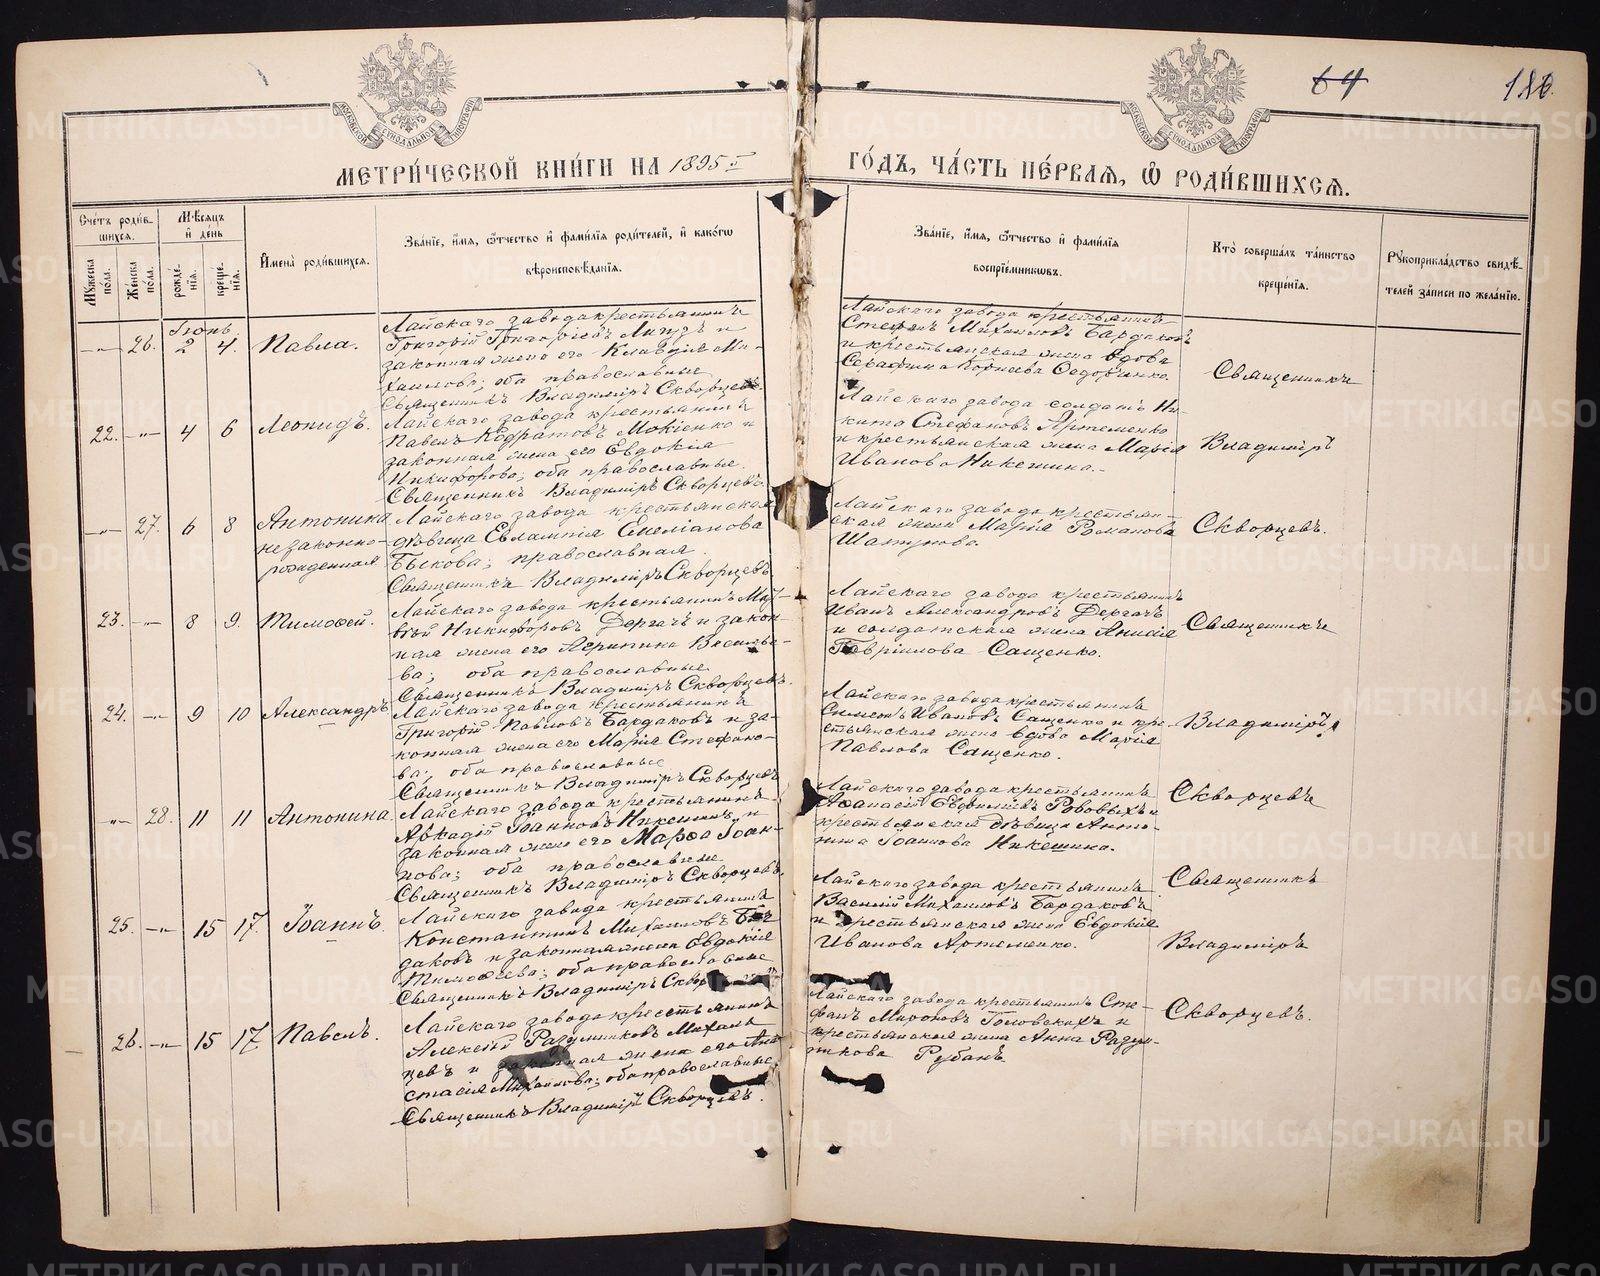 64
180.
МОСКОВСКОЙ СѴНОДАЛЬНОЙ ТИПОГРАФІИ
МОСКОВСКОЙ СѴНОДАЛЬНОЙ ТИПОГРАФІИ
МЕТРИ́ЧЕСКОЙ КНИ́ГИ НА 1895 й
ГО́ДЪ, ЧА́СТЬ ПЕ́РВАЯ, Ѽ РОДИ́ВШИХСЯ.
Сче́тъ роди́в-
шихся.
Мꙋжеска по́ла.
Же́нска по́ла.
Мѣ́сяцъ
и҆ де́нь
рожде́-
нїя.
креще́-
нїя.
И҆мена̀ роди́вшихся.
Зва́нїе, и҆́мя, ѻ҆́тчество и҆ фами́лїя роди́телей, и҆ како́гѡ
вѣроисповѣ́данїя.
Зва́нїе, и҆́мя, ѻ҆́тчество и҆ фами́лїя
воспрїе́мникѡвъ.
Кто̀ соверша́лъ та́инство
креще́нїя.
Рꙋкоприкла́дство свидѣ́-
телей за́писи по жела́нїю.
Іюнь.
—"— 26. 2 4. Павла.
Лайскаго завода крестьянинъ
Григорій Григоріевъ и
законная жена его Клавдія Ми-
хаилова; оба православные
Священникъ Владиміръ Скворцевъ.
Лайскаго завода крестьянинъ
Стефанъ Михаиловъ Бардаковъ
и крестьянская жена вдова
Серафима Корнеева Федорченко.
22. —"— 4 6 Леонидъ.
Лайскаго завода крестьянинъ
Павелъ Кодратовъ Мокіенко и
законная жена его Евдокія
Никифорова; оба православные.
Священникъ Владиміръ Скворцевъ.
Лайскаго завода солдатъ Ни-
кита Стефановъ Артеменко
и крестьянская жена Марія
Иванова Никешина.
—"— 27. 6 8 Антонина
незаконно-
рожденная
Лайскаго завода крестьянская
дѣвица Евлампія Емеліанова
Быкова; православная.
Священникъ Владиміръ Скворцевъ
Лайскаго завода крестьян-
ская жена Марія Романова
23. —"— 8 9. Тимоѳей.
Лайскаго завода крестьянинъ Мат-
вѣй Никифоровъ Дергачъ и закон-
ная жена его Агрипина Василье-
ва; оба православные
Священникъ Владиміръ Скворцевъ.
Лайскаго завода крестьянинъ
Иванъ Александровъ Дергачъ
и солдатская жена Анисія
Гавріилова Сащенко.
24. —"— 9 10 Александръ
Лайскаго завода крестьянинъ
Григорій Павловъ Бардаковъ и за-
конная жена его Марія Стефано-
ва; оба православные
Священникъ Владиміръ Скворцевъ
Лайскаго завода крестьянинъ
Симеонъ Ивановъ Сащенко и кре-
стьянская жена вдова Марія
Павлова Сащенко.
—"— 28. 11 11 Антонина
Лайскаго завода крестьянинъ
Аркадій Іоанновъ Никешинъ и
законная жена его Марѳа Іоан-
нова; оба православные
Священникъ Владиміръ Скворцевъ.
Лайскаго завода крестьянинъ
Аѳанасій Евфиміевъ и
крестьянская дѣвица Анто-
нина Іоаннова Никешина.
25. —"— 15 17. Іоаннъ.
Лайскаго завода крестьянинъ
Константинъ Михаиловъ Бар-
даковъ и законная жена Евдокія
Тимоѳеева; оба православные
Священникъ Владиміръ
Лайскаго завода крестьянинъ
Василій Михаиловъ Бардаковъ
и крестьянская жена Евдокія
Иванова Артеменко.
26. —"— 15 17 Павелъ.
Лайскаго завода крестьянинъ
Алексѣй
и законная жена его Ана-
стасія Михаилова; оба православные
Священникъ Владиміръ Скворцевъ.
Лайскаго завода крестьянинъ Сте-
фанъ Мироновъ Головскихъ и
крестьянская жена Анна
Рубанъ.
Священникъ
Владиміръ
Скворцевъ.
Священникъ
Владиміръ
Скворцевъ
Священникъ
Владиміръ
Скворцевъ.
METRIKI.GASO-URAL.RU